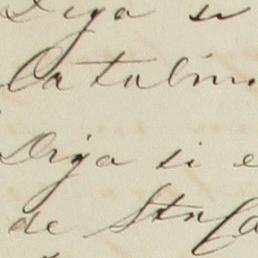 Diga si
Catalin
Diga si e
de Sta Ca